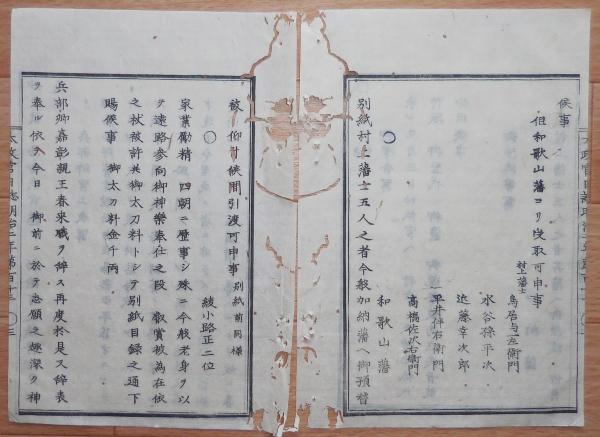 候事
但和歌山藩ヨリ受取可申事
村上藩士
鳥居与左衛門
水谷孫平次
近藤幸次郎
平井伴右衛門
高橋佐次右衛門
和歌山藩
別紙村上藩士五人之者今般加納藩ヘ御預替
被 仰付候間引渡可申事 別紙前同様
○
綾小路正二位
家業勵精 四朝ニ歴事シ殊ニ今般老身ヲ以
テ遠路参向御神樂奉仕之段 叡賞被為在依
之杖被許其御太刀料トシテ別紙目録之通下
賜候事 御太刀料金千両
兵部卿嘉彰親王春来職ヲ辞ス再度於是又辞表
ヲ奉ル依テ今日 御前ニ於テ志願之趣深ク神
太政官日誌明治二年第百十三 ○三